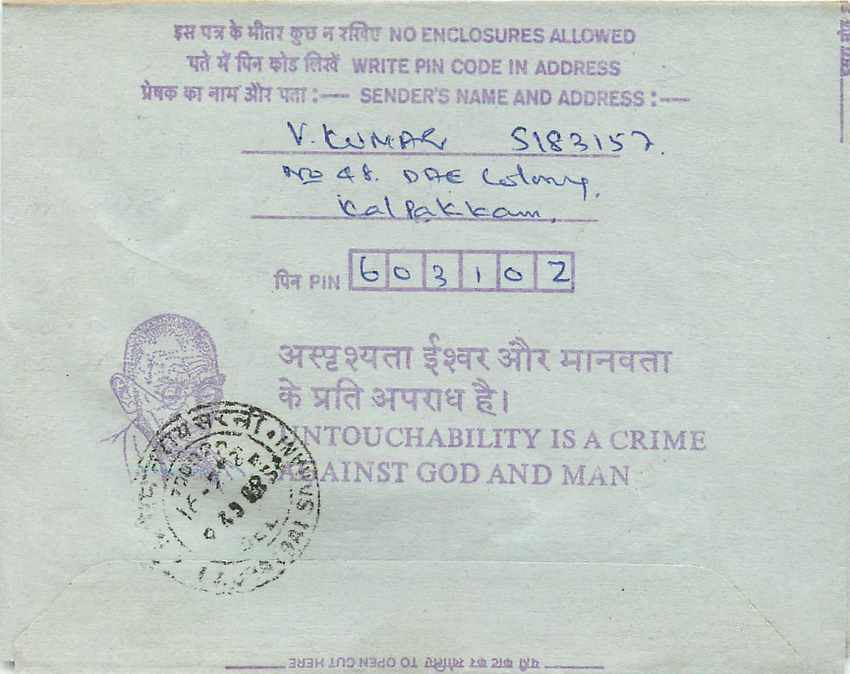 इस पत्र के भीतर कुछ न रखिए NO ENCLOSURES ALLOWED
पते में पिन कोड लिखें WRITE PIN CODE IN ADDRESS
प्रेषक का नाम और पता :— SENDER'S NAME AND ADDRESS :—
V. KUMAR S183157.
No 48. DAE Colony.
Kalpakkam.
पिन PIN 603102
अस्पृश्यता ईश्वर और मानवता
के प्रति अपराध है।
UNTOUCHABILITY IS A CRIME
AGAINST GOD AND MAN
यहाँ काट कर खोलिए TO OPEN CUT HERE